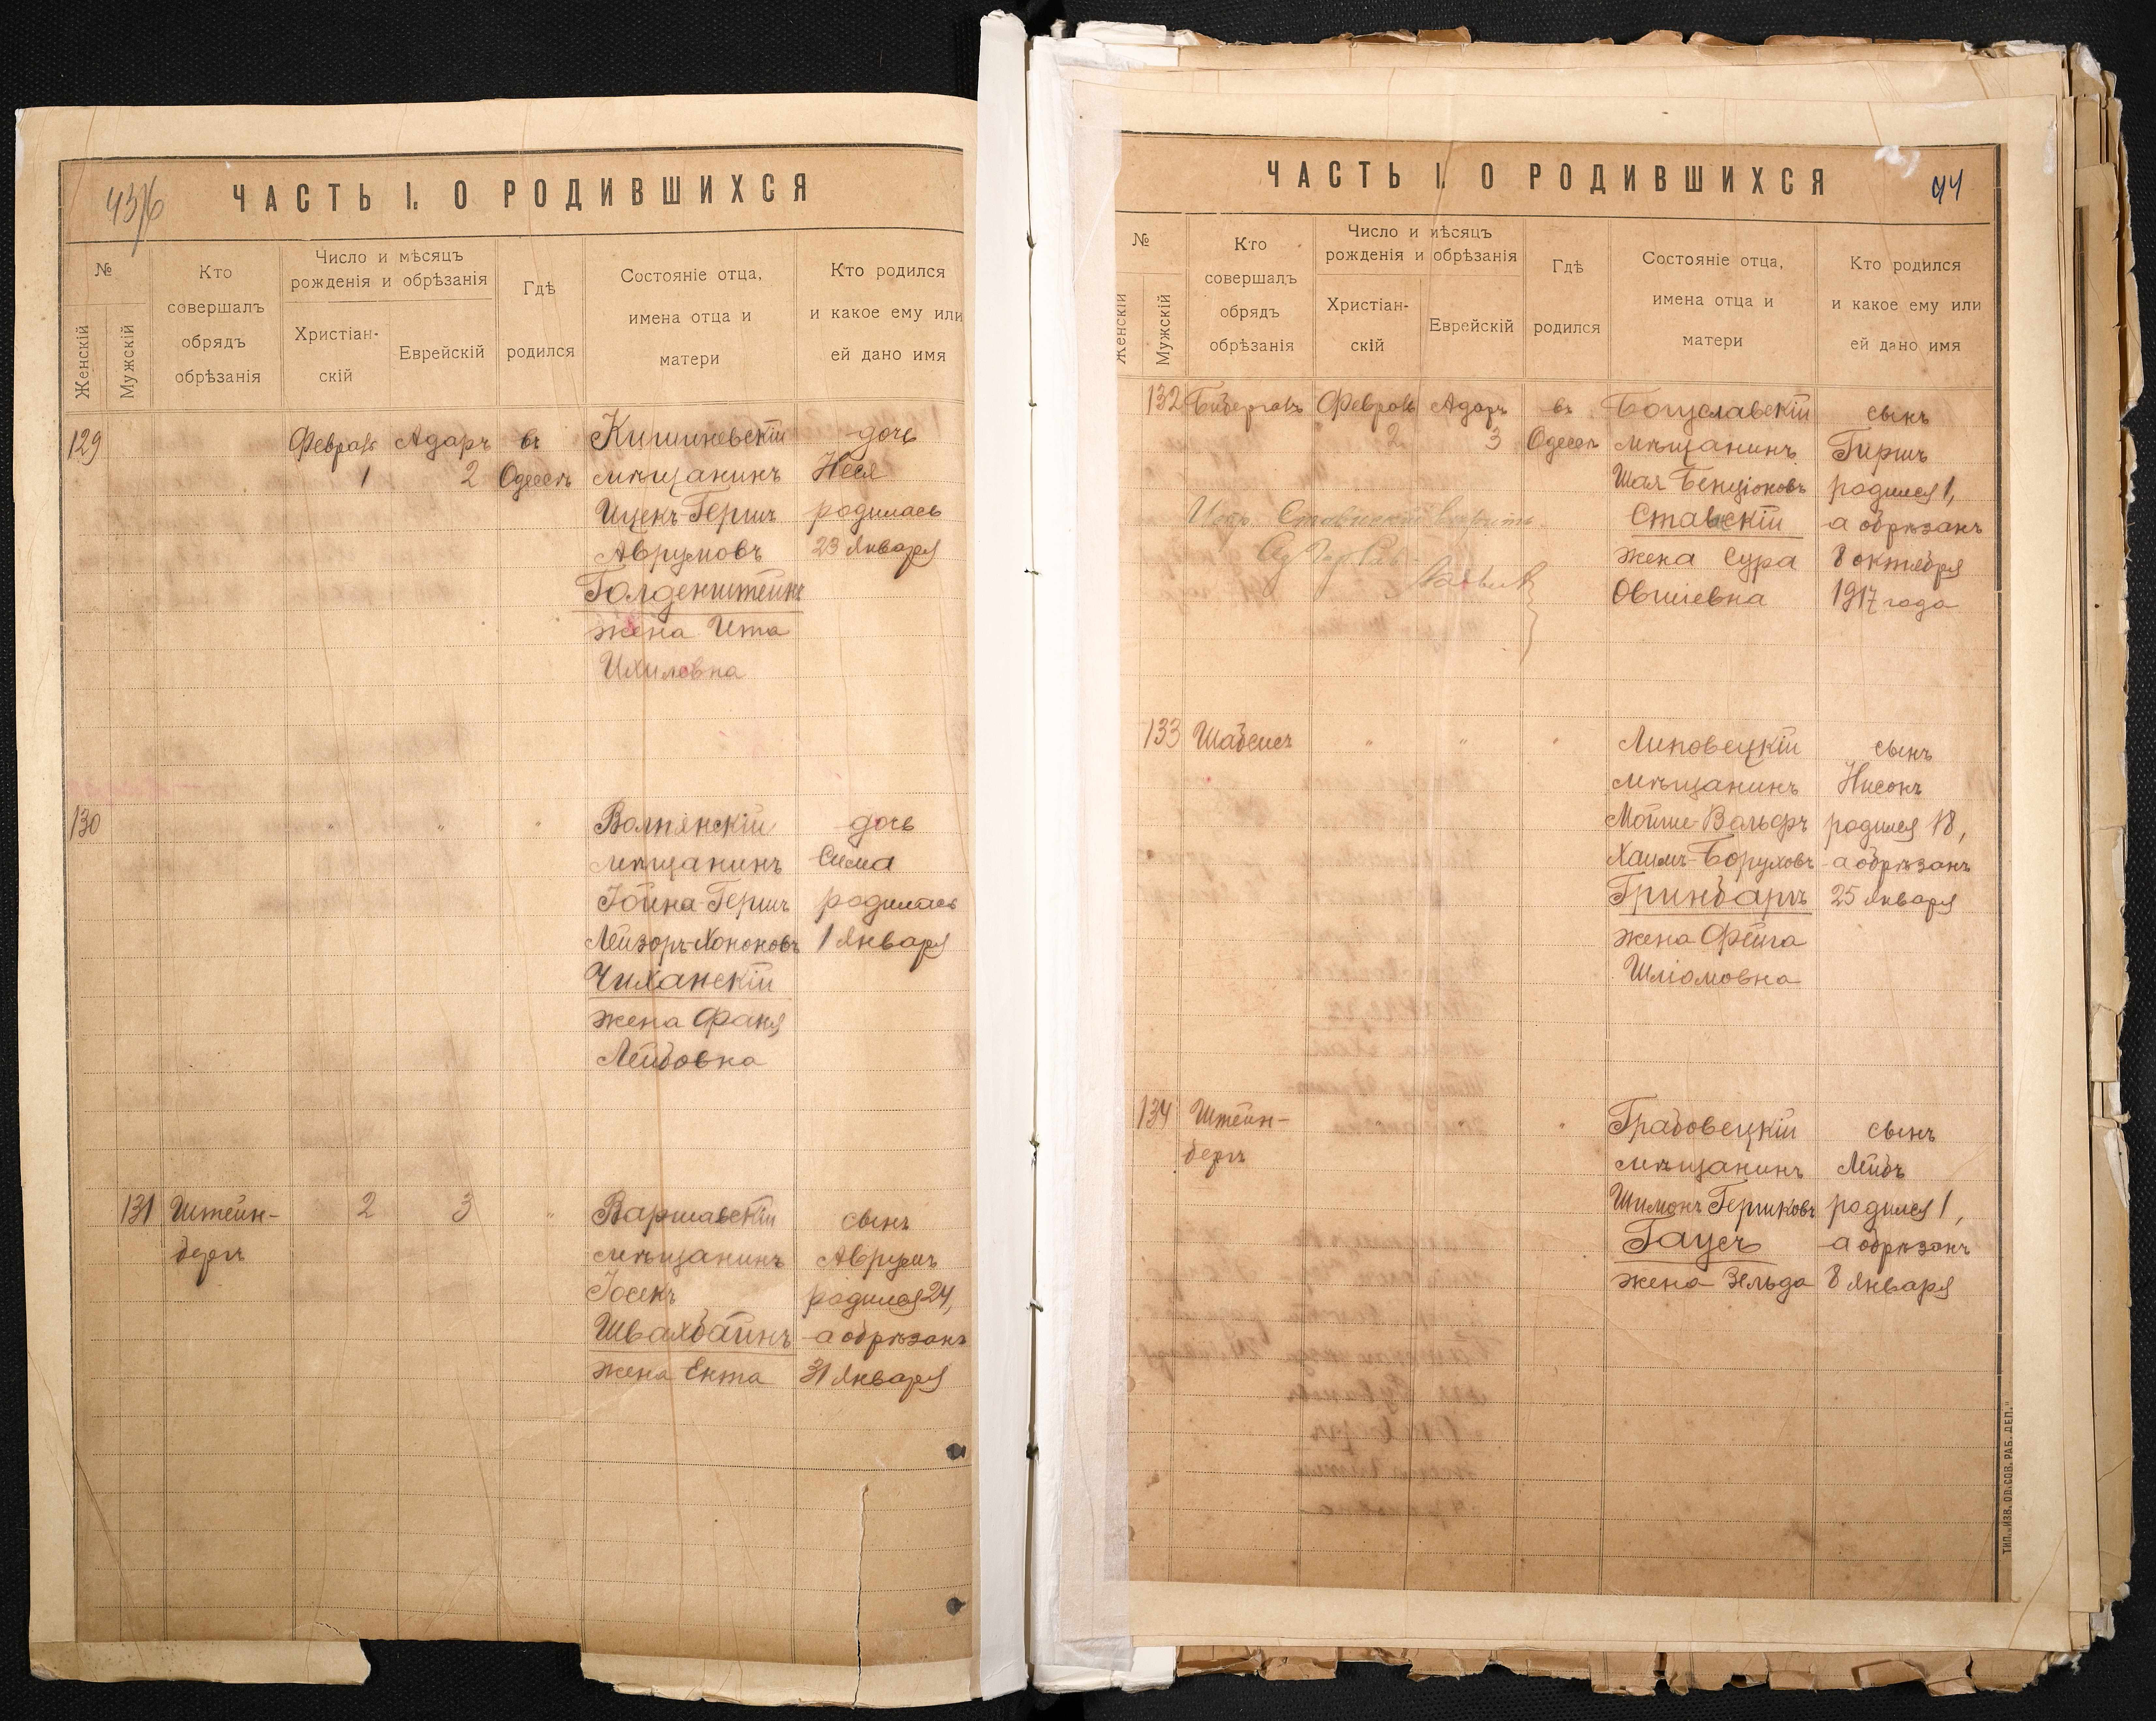 43/6
ЧАСТЬ I. О РОДИВШИХСЯ
№
Женскій
Мужскій
Кто
совершалъ
обрядъ
обрѣзанія
Число и мѣсяцъ
рожденія и обрѣзанія
Христіан-
скій
Еврейскій
Гдѣ
родился
Состояніе отца,
имена отца и
матери
Кто родился
и какое ему или
ей дано имя
129 Февраль Адаръ въ Кишиневскій дочь
1 2 Одессѣ мѣщанинъ Неся
Ицекъ-Гершъ родилась
Аврумовъ 23 Января
Голденштейнъ
жена Ита
Ихилевна
130 " " " Волянскій дочь
мѣщанинъ Сима
Іойна-Гершъ родилась
Лейзоръ-Хононовъ 1 Января
Чиханскій
жена Фаня
Лейбовна
131 Штейн- 2 3 " Варшавскій сынъ
бергъ мѣщанинъ Аврумъ
Іосекъ родился 24,
Швалбайнъ а обрѣзанъ
жена Ента 31 Января
ЧАСТЬ I. О РОДИВШИХСЯ
44
№
Женскій
Мужскій
Кто
совершалъ
обрядъ
обрѣзанія
Число и мѣсяцъ
рожденія и обрѣзанія
Христіан-
скій
Еврейскій
Гдѣ
родился
Состояніе отца,
имена отца и
матери
Кто родился
и какое ему или
ей дано имя
132 Февраль Адаръ въ Богуславскій сынъ
2 3 Одессѣ мѣщанинъ Гиршъ
Шая Бенціоновъ родился 1,
Ставскій а обрѣзанъ
жена Сура 8 октября
Овшіевна 1917 года
133 Шабсисъ " " " Липовецкій сынъ
мѣщанинъ Нисонъ
Мойше-Вольфъ родился 18,
Хаимъ-Боруховъ а обрѣзанъ
Гринбаргъ 25 Января
жена Фейга
Шліомовна
134 Штейн- " " Грабовецкій сынъ
бергъ мѣщанинъ Лейбъ
Шимонъ Гершковъ родился 1,
Гаусъ а обрѣзанъ
жена Зельда 8 Января
ТИП. „ИЗВ. ОД. СОВ. РАБ. ДЕП."